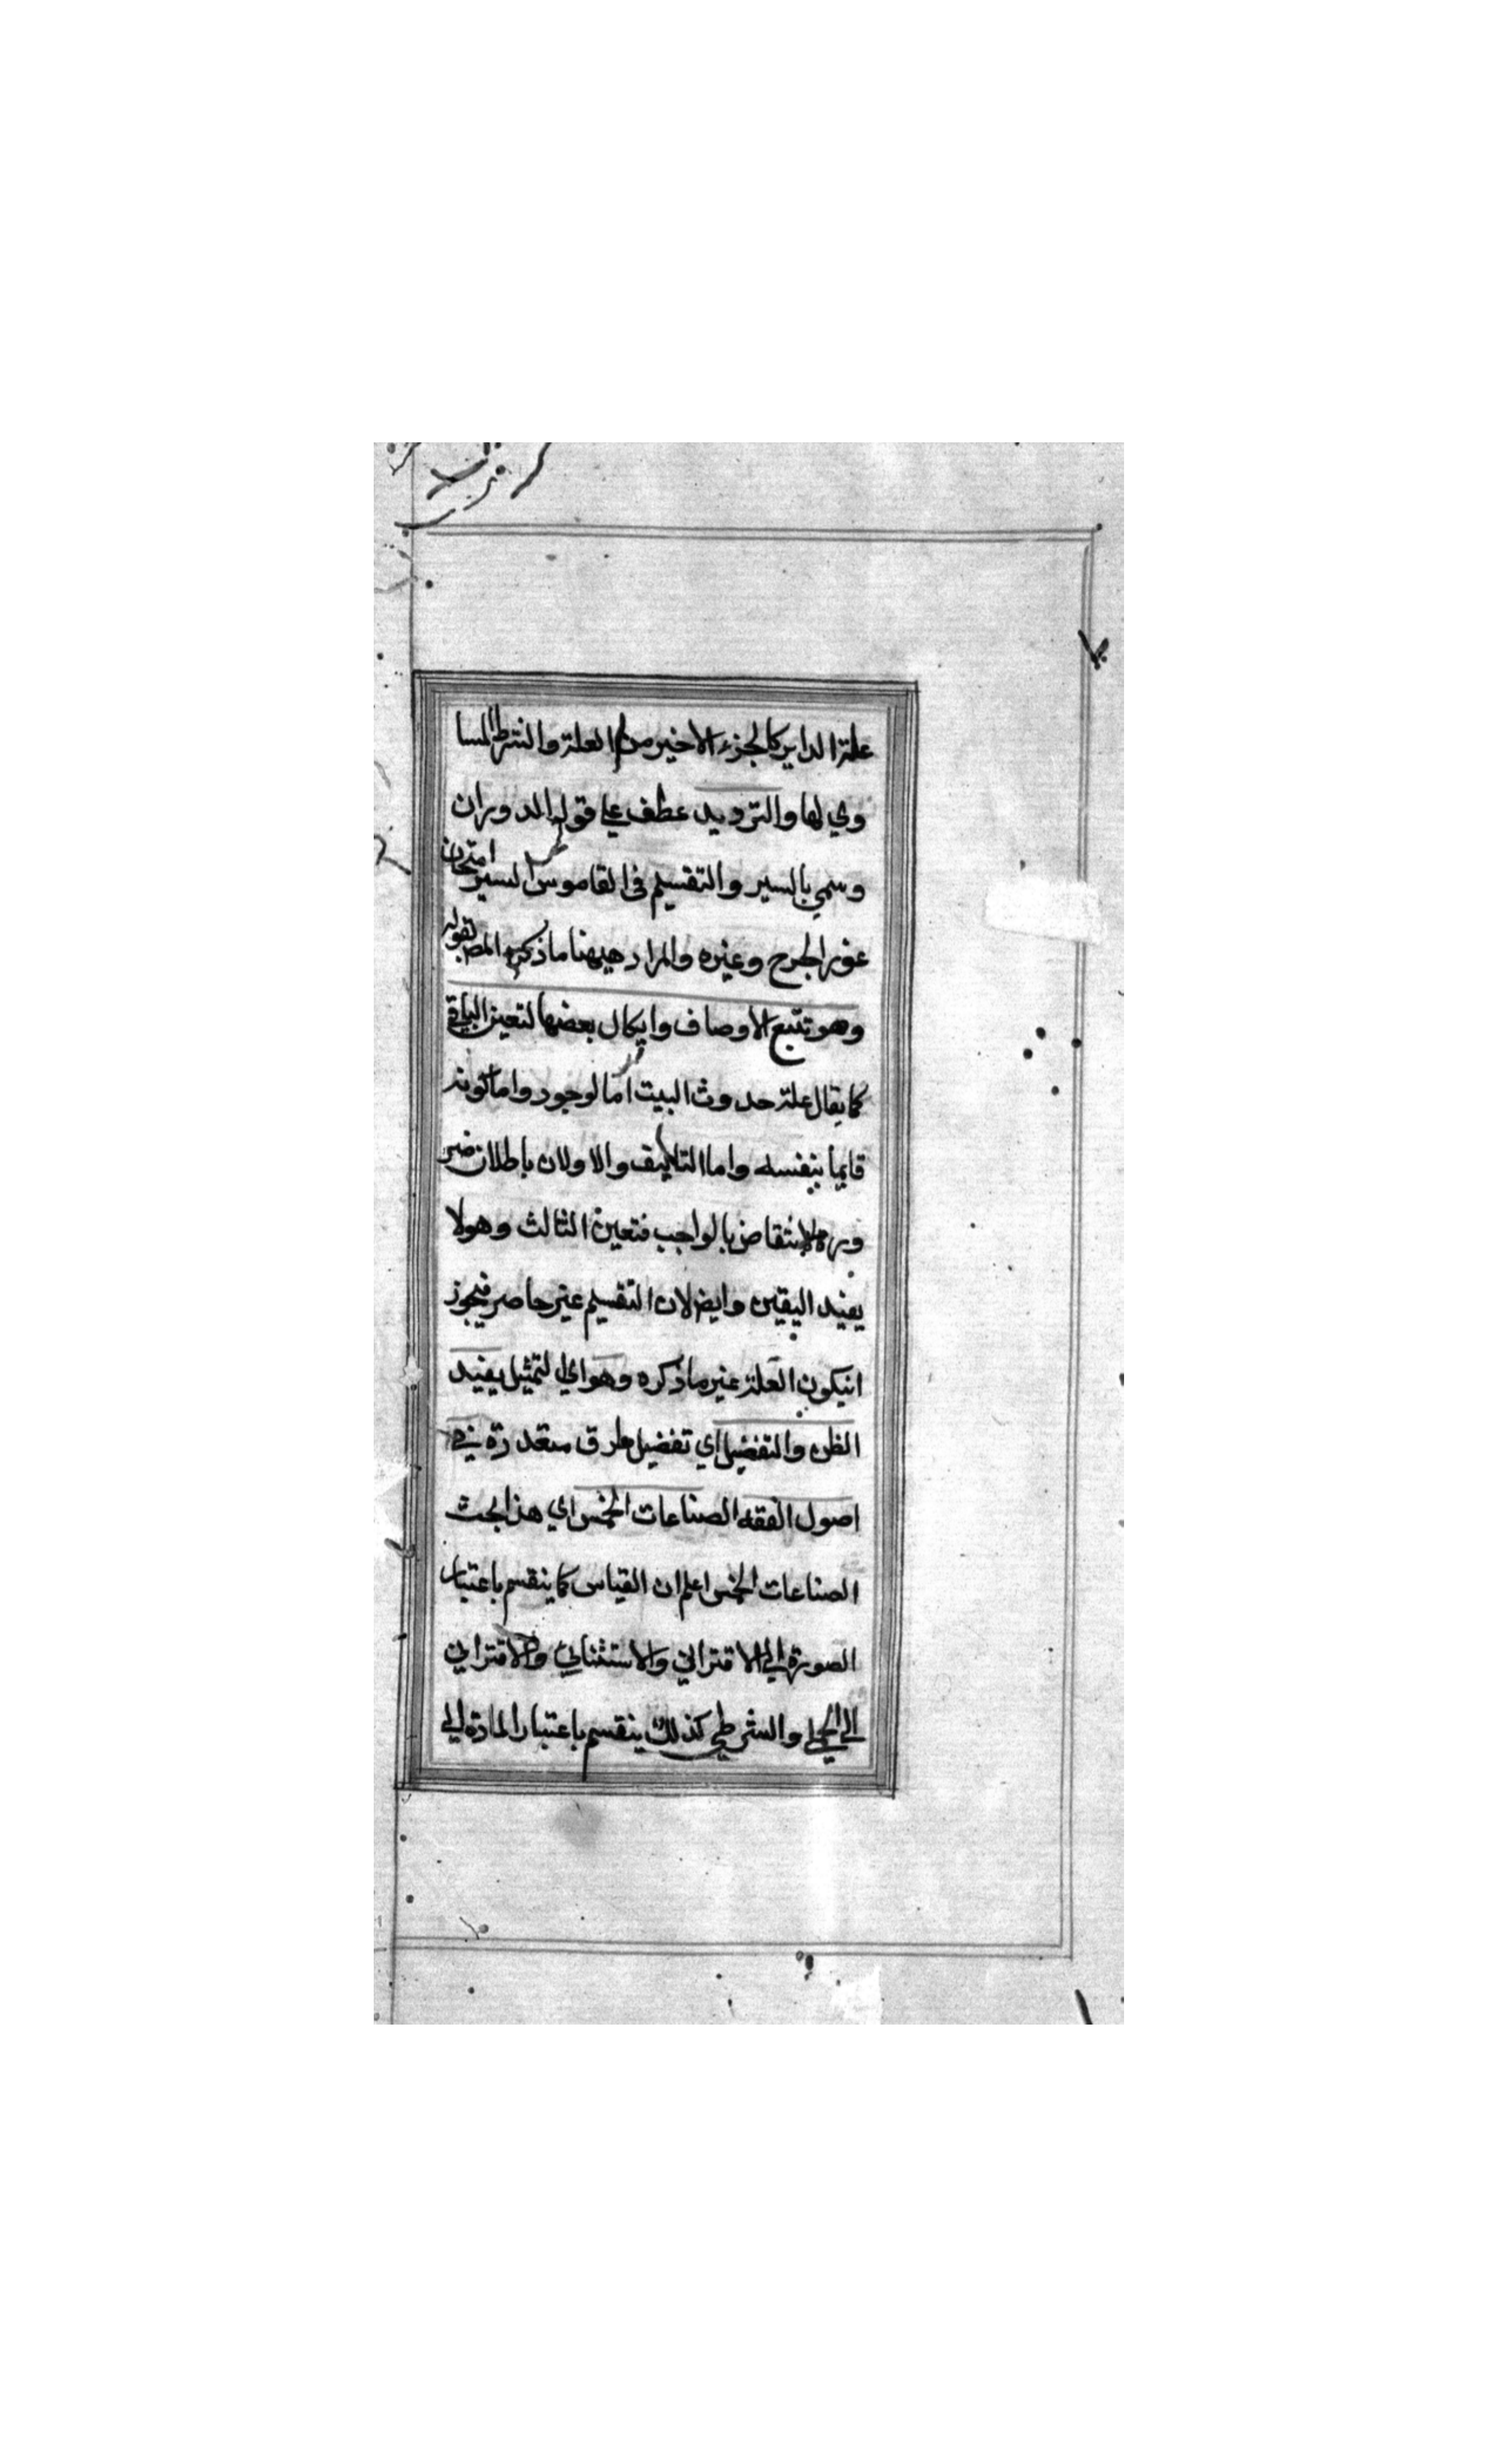 علة الداير كالجزء الاخير من العلة والشرط المسا
وي لها والترديد عطف علي قوله الدوران
وسمي بالسير والتقسيم في القاموس السير امتحان
غور الجرح وغيره والمراد هيهنا ما ذكره المص بقوله
وهو تتبع الاوصاف وابطال بعضها لتعين الباقي
كما يقال علة حدوث البيت اما لوجود واما كونه
قايما بنفسه واما التاليف والاولان باطلان ضر
ورة الانتقاض بالواجب فتعين الثالث وهو لا
يفيد اليقين وايضا لان التقسيم غير حاصر فيجوز
انيكون العلة غير ما ذكره وهو اي التمثيل يفيد
الظن والتفضيل اي تفضيل طرق متعددة في
اصول الفقه الصناعات الخمس اي هذا بحث
الصناعات الخمس اعلم ان القياس كما ينقسم باعتبار
الصورة الي الاقتراني والاستثنائي والاقتراني
الي الحملي والشرطي كذلك ينقسم باعتبار المادة الي